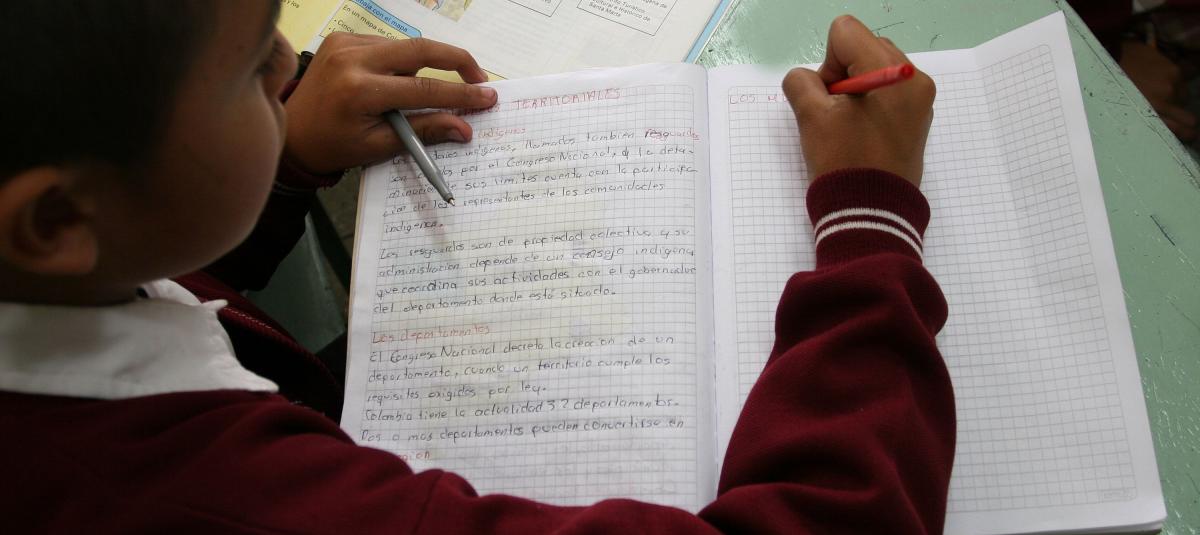 deja con el mapa
En un mapa de Col
• Cinco
y los
Turístico
ural e Histórico de
Santa Marta
TERRITORIALES
indígenas
indígenas, llamados también resguardos
son por el Congreso Nacional, y la deter-
minación de sus límites cuenta con la participa
ción de los representantes de las comunidades
indígena.
Los resguardos son de propiedad colectiva y su
administración depende de un consejo indígena
que coordina sus actividades con el gobernador
del departamento donde está situado.
Los departamentos
El Congreso Nacional decreta la creación de un
departamento, cuando un territorio cumple los
requisitos exigidos por ley.
Colombia tiene la actualidad 32 departamentos.
Dos o mas departamentos pueden convertirse en
region
LOS M